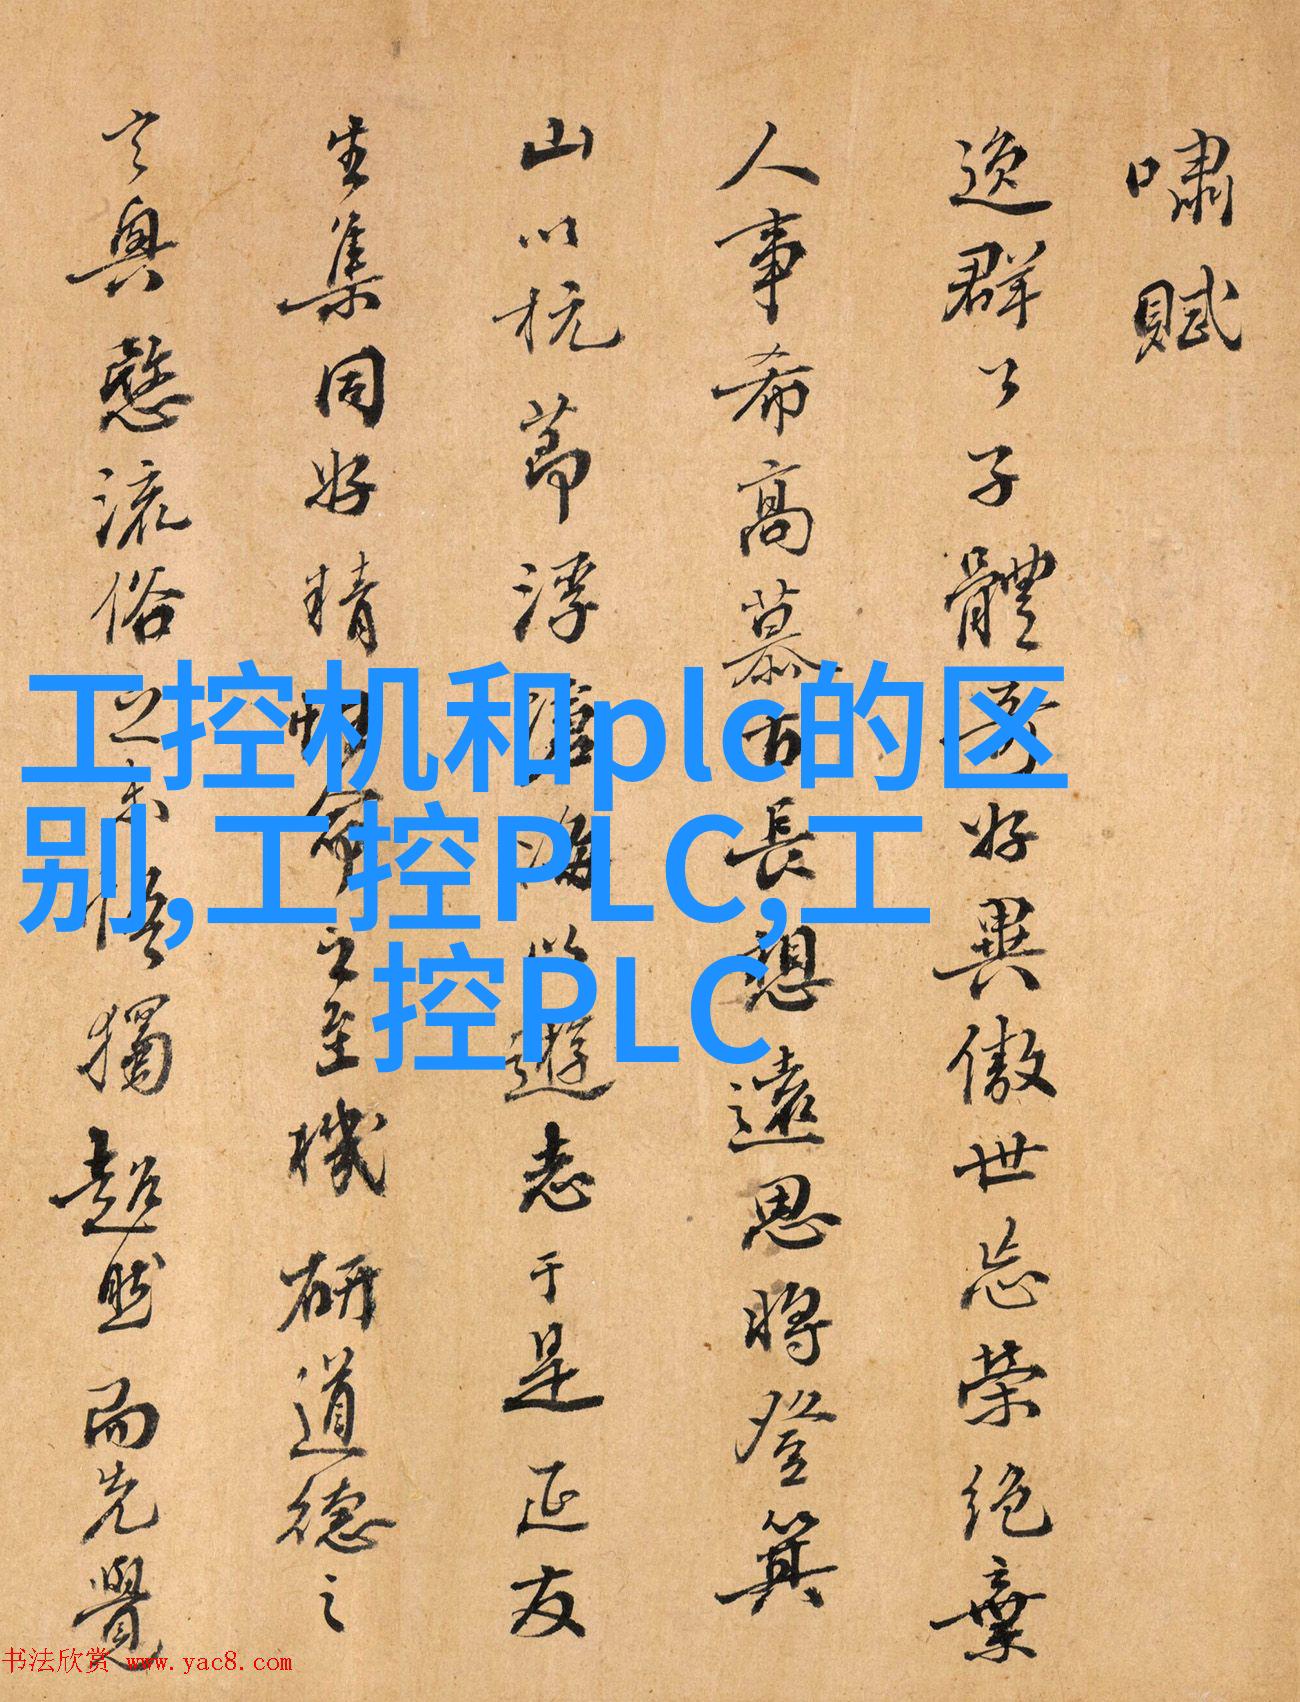 嘯賦
逸群公子體奇好異傲世忘榮絕棄
人事希高慕古長想遠思將登箕
山以抗節浮滄海以遊志于是延友
生集同好精性命之至機研道德之
玄奧愍流俗之未悟獨超然而先覺
工控机和plc的区
别,工控PLC,工
控PLC
书法欣赏 www.yac8.com